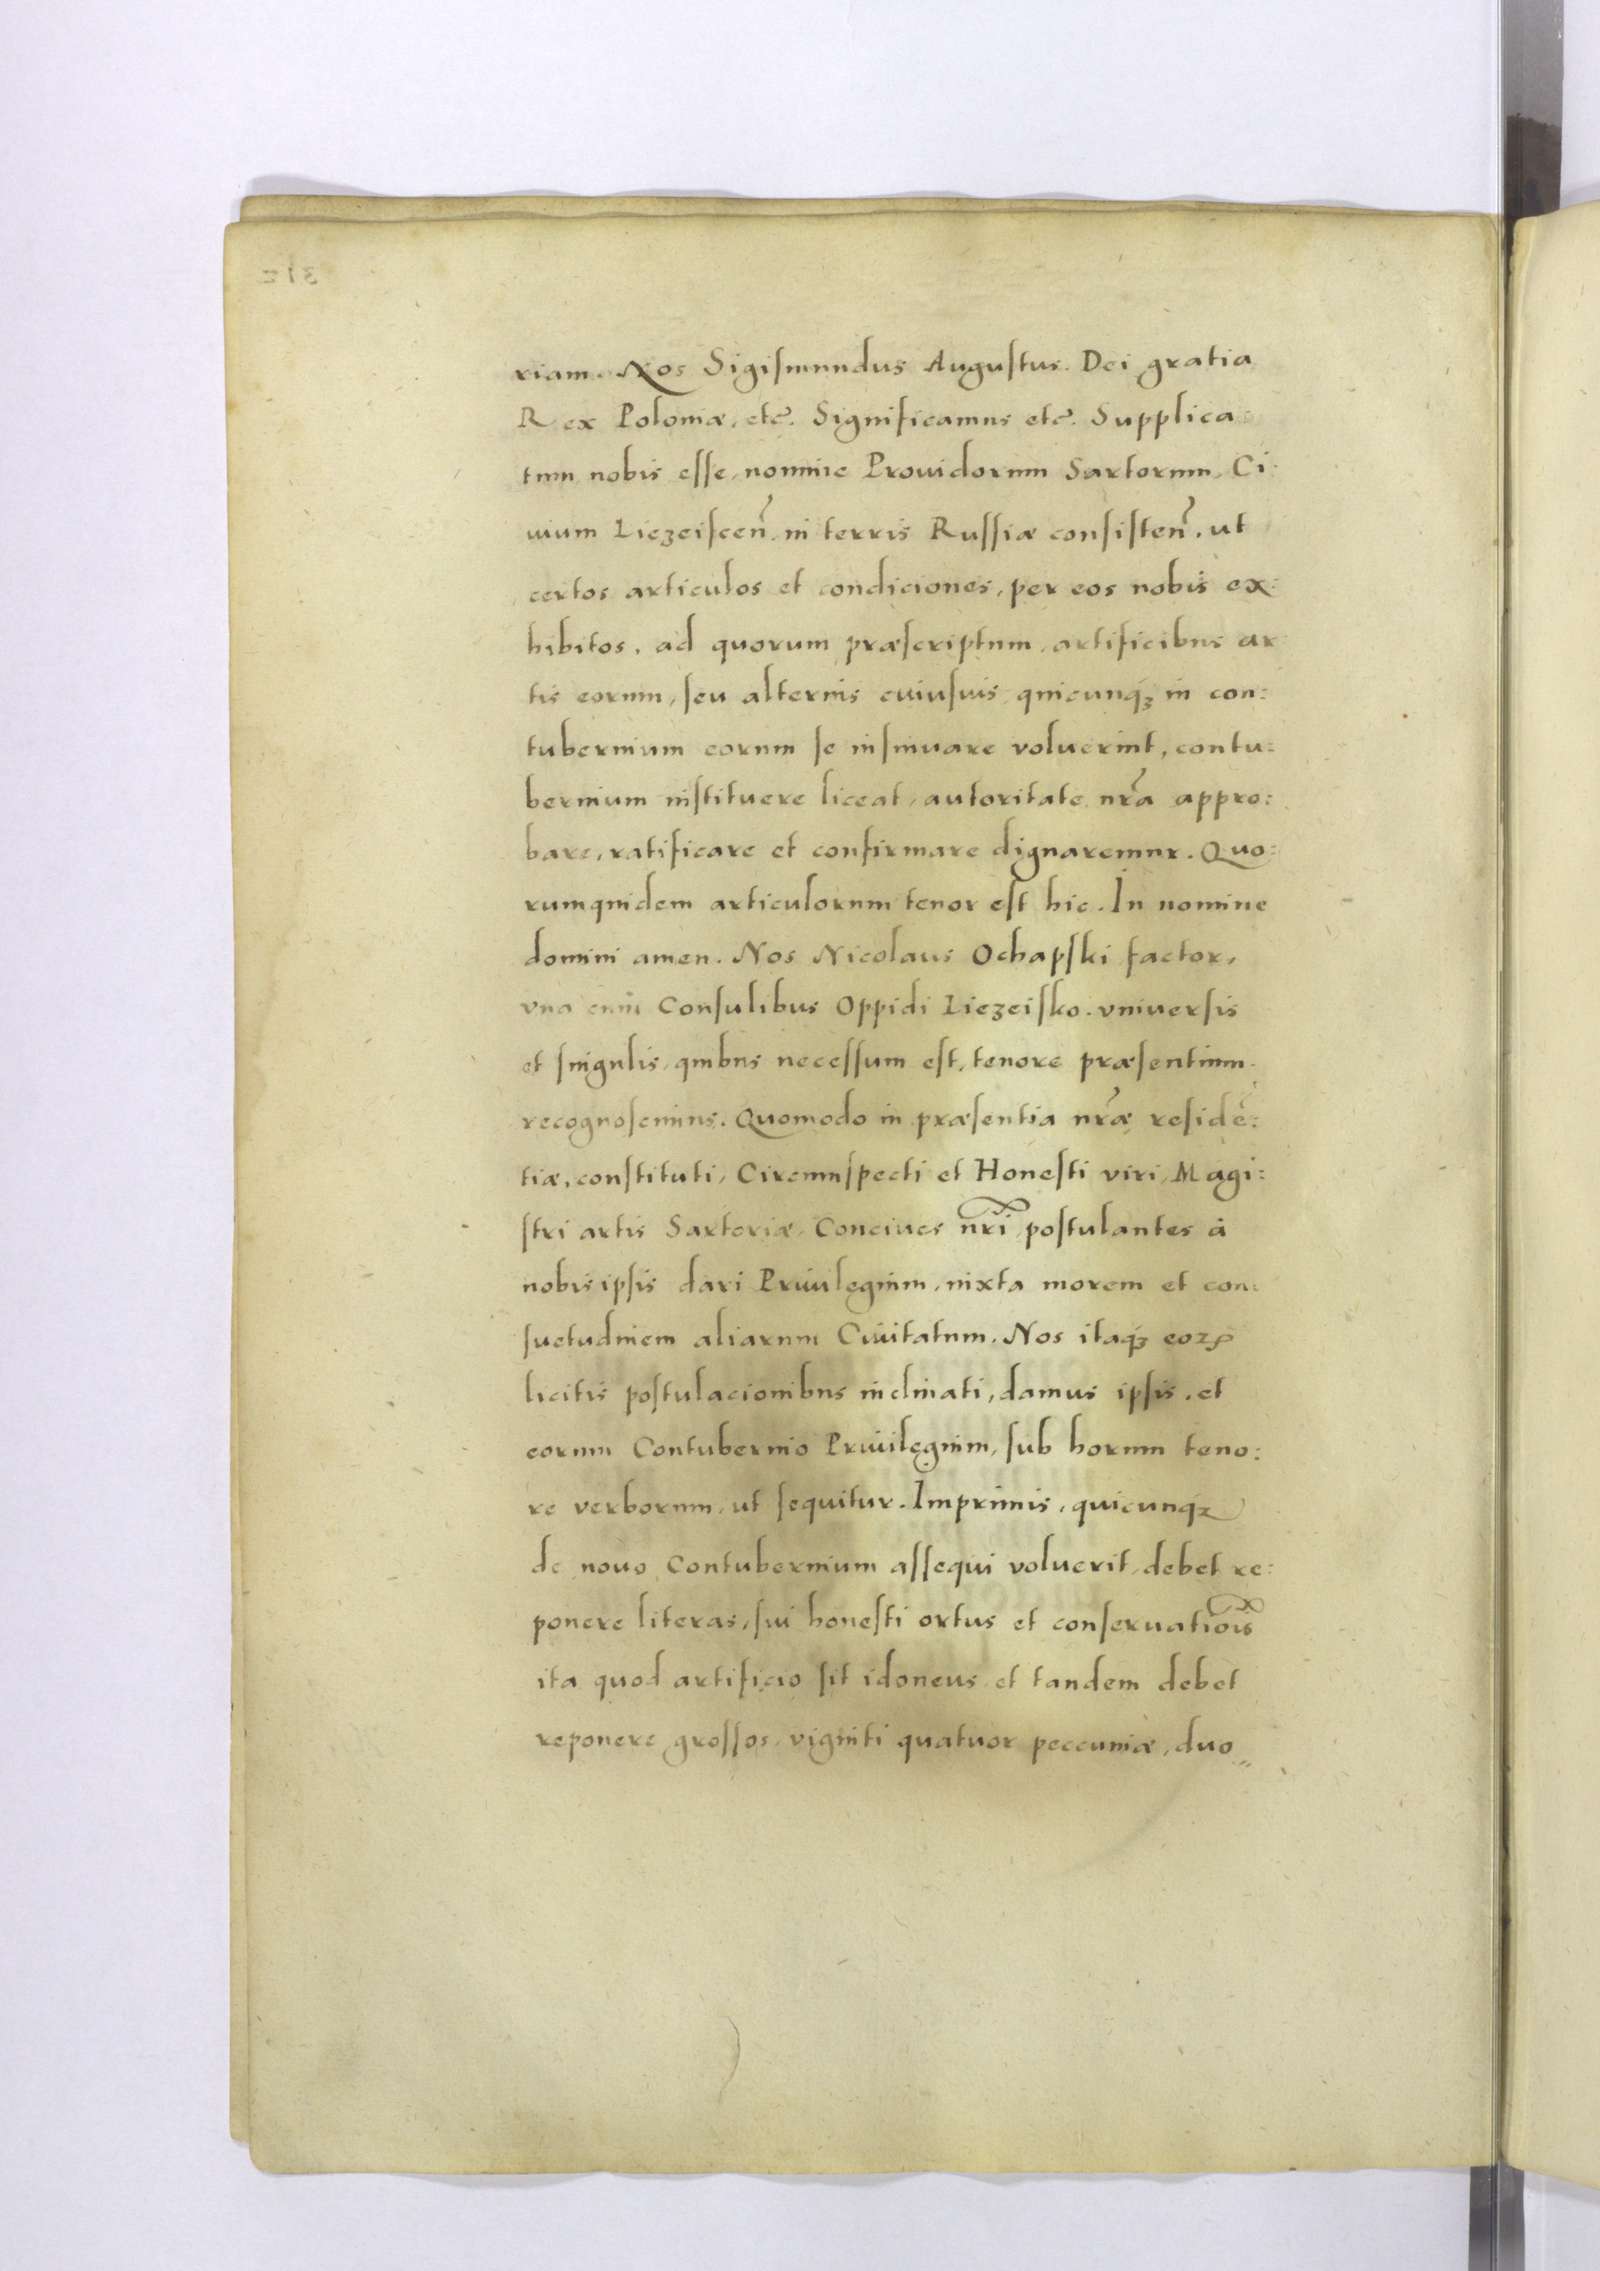 riam. Nos Sigiſmundus Auguſtus. Dei gratia
Rex Poloniæ, etc. Significamus etc. Supplica
tum nobis eſſe, nomine Prouidorum Sartorum, Ci:
uium Liezeiſcen̄. in terris Ruſſiæ conſiſten̄. ut
certos articulos et condiciones, per eos nobis ex:
hibitos, ad quorum præſcriptum, artificibus ar
tis eorum, ſeu alterius cuiuſuis, quicunqꝫ in con:
tubernium eorum ſe inſinuare voluerint, contu:
bernium inſtituere liceat, autoritate nr̄a appro:
bare, ratificare et confirmare dignaremur. Quo:
rumquidem articulorum tenor eſt hic. In nomine
domini amen. Nos Nicolaus Ochapſki factor,
vna cum Conſulibus Oppidi Liezeiſko. vniuerſis
et ſingulis, quibus neceſſum eſt, tenore præſentium
recognoſcimus. Quomodo in præſentia nr̄æ reſidē:
tiæ, conſtituti, Circumſpecti et Honeſti viri, Magi:
ſtri artis Sartoriæ, Conciues nr̄i, poſtulantes à
nobis ipſis dari Priuilegium, iuxta morem et con:
ſuetudinem aliarum Ciuitatum. Nos itaqꝫ eoꝝ
licitis poſtulacionibus inclinati, damus ipſis, et
eorum Contubernio Priuilegium, ſub horum teno:
re verborum, ut ſequitur. Imprimis, quicunqꝫ
de nouo Contubernium aſſequi voluerit, debet re:
ponere literas, ſui honeſti ortus et conſeruatiōis
ita quod artificio ſit idoneus et tandem debet
reponere groſſos, viginti quatuor peccuniæ, duo